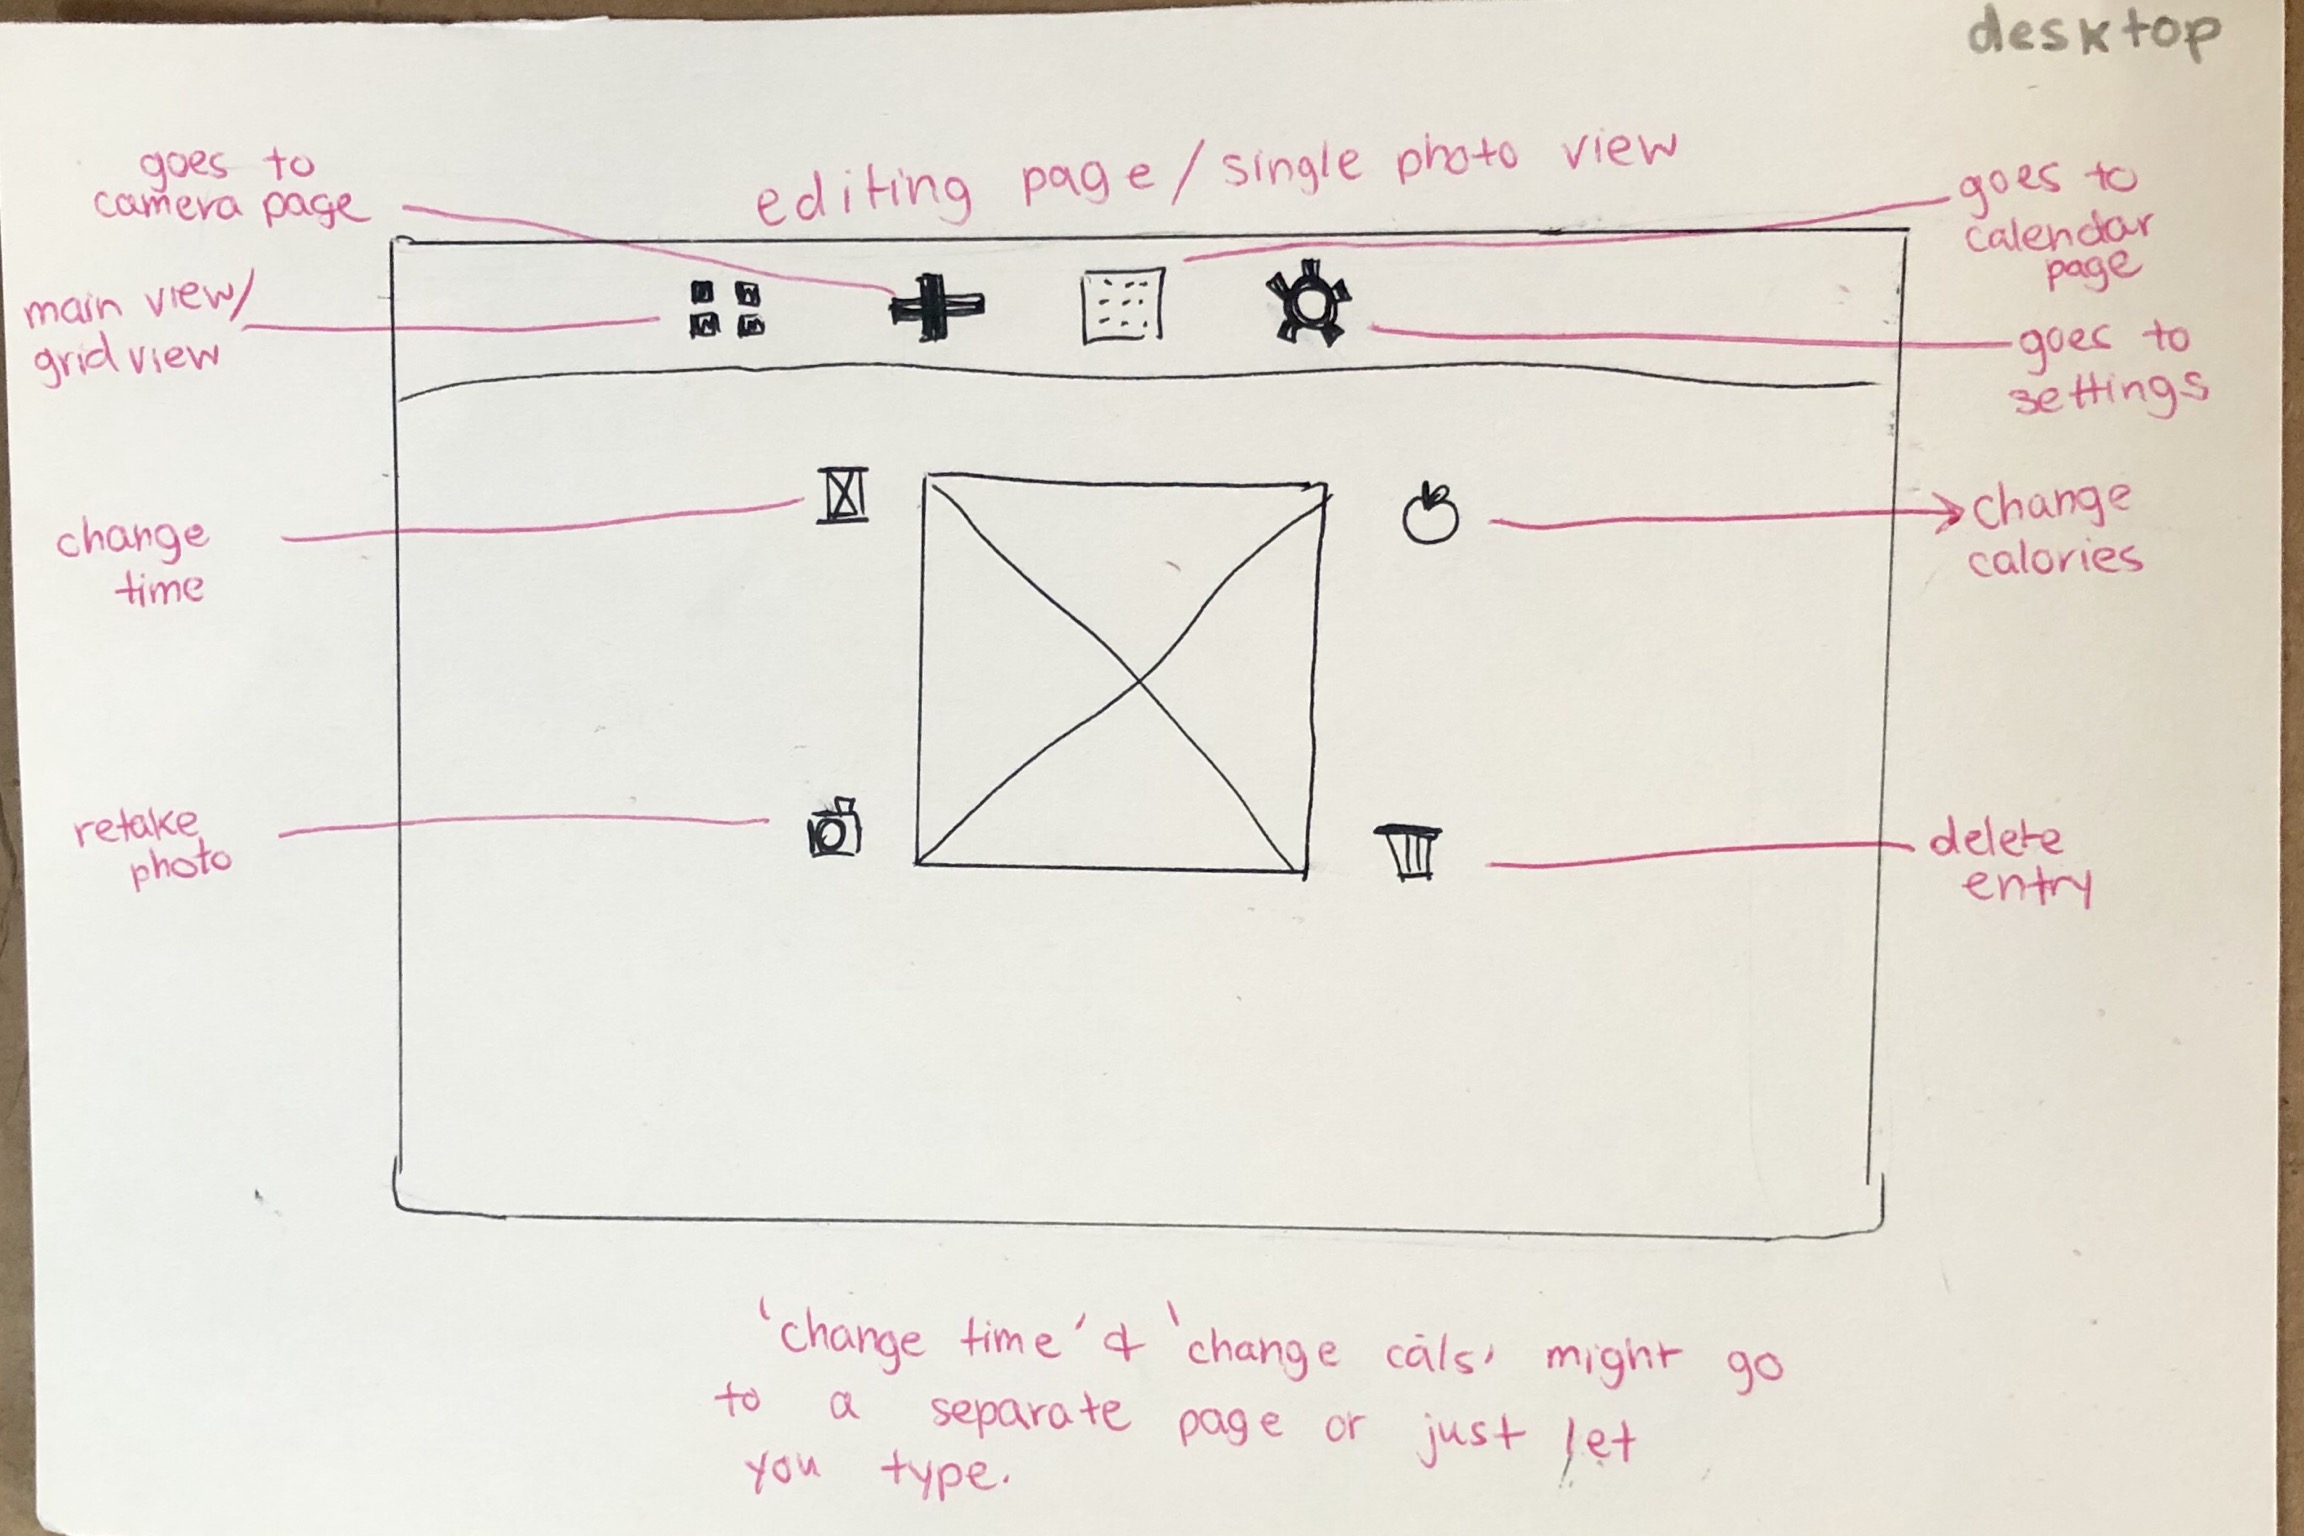 desktop
editing page/single photo view
goes to
camera page
goes to
calendar
page
main view/
grid view
goes to
settings
change
time
change
calories
retake
photo
delete
entry
'change time' & 'change cals' might go
to a separate page or just let
you type.